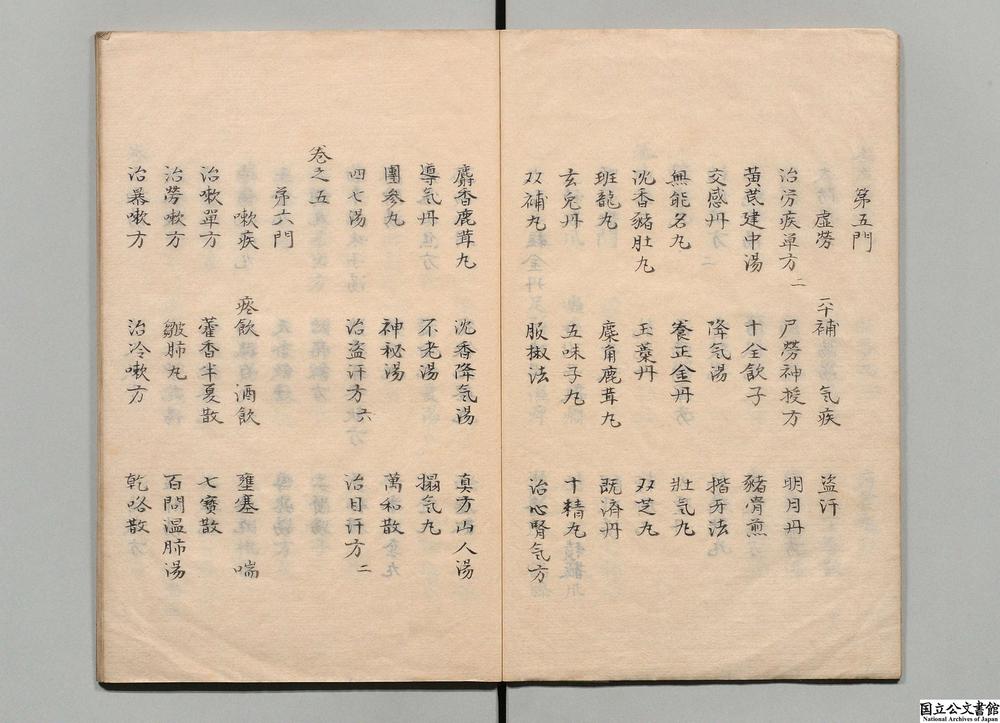 第五門
虚勞 平補 气疾 盜汗
治労疾単方二 尸勞神授方 明月丹
黄芪建中湯 十全飲子 豬骨煎
交感丹 降气湯 揩牙法
無能名丸 養正金丹 壮气丸
沈香豬肚丸 玉藥丹 双芝丸
班龍丸 麋角鹿茸丸 既濟丹
玄兔丹 五味子丸 十精丸
双補丸 服椒法 治心腎气方
麝香鹿茸丸 沈香降气湯 真方山人湯
導气丹 不老湯 搨气丸
團参丸 神秘湯 萬和散
四七湯 治盜汗方六 治目汗方二
卷之五
第六門
嗽疾 痰飲 酒飲 壅塞 喘
治嗽單方 藿香半夏散 七寶散
治勞嗽方 皺肺丸 百問温肺湯
治暴嗽方 治冷嗽方 乾咯散
国立公文書館
National Archives of Japan